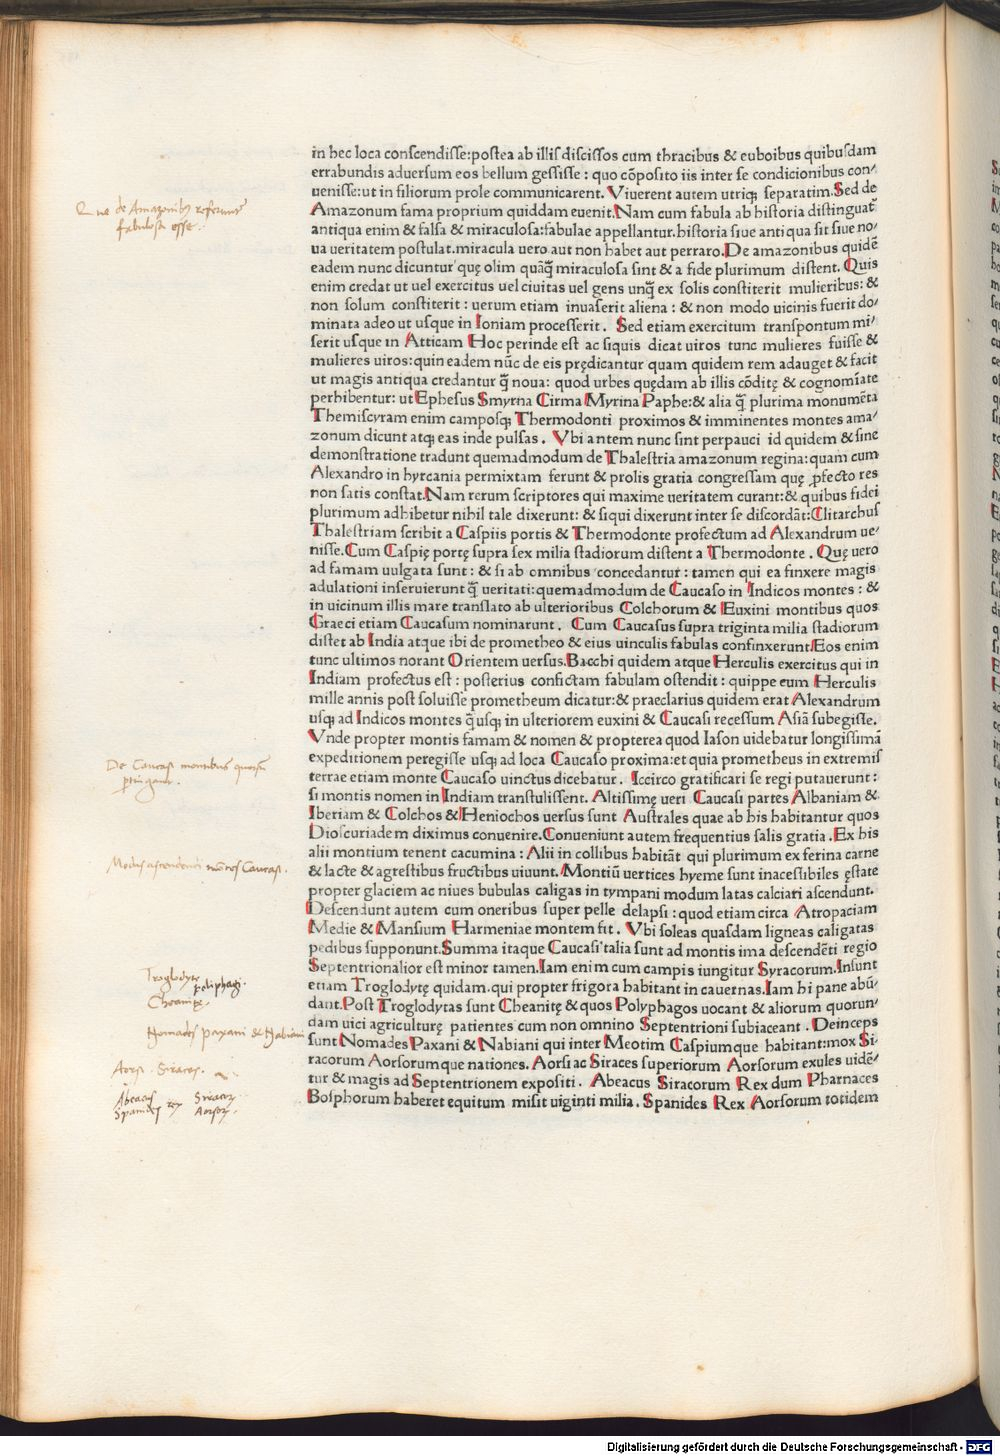 in hec loca conscendisse:postea ab illis discissos cum thracibus & euboibus quibusdam
errabundis aduersum eos bellum gessisse : quo cōposito iis inter se condicionibus con⸗
uenisse:ut in filiorum prole communicarent. Viuerent autem utriqꝫ separatim.Sed de
Amazonum fama proprium quiddam euenit.Nam cum fabula ab historia distinguat᷑
antiqua enim & falsa & miraculosa:fabulae appellantur.historia siue antiqua sit siue no⸗
ua ueritatem postulat.miracula uero aut non habet aut perraro.De amazonibus quidē
eadem nunc dicuntur quę olim quāq̄ miraculosa sint & a fide plurimum distent. Quis
enim credat ut uel exercitus uel ciuitas uel gens unq̄ ex solis constiterit mulieribus: &
non solum constiterit : uerum etiam inuaserit aliena : & non modo uicinis fuerit do⸗
minata adeo ut usque in Ioniam processerit . Sed etiam exercitum transpontum mi⸗
serit usque in Atticam Hoc perinde est ac siquis dicat uiros tunc mulieres fuisse &
mulieres uiros:quin eadem nūc de eis prędicantur quam quidem rem adauget & facit
ut magis antiqua credantur q̄ noua: quod urbes quędam ab illis cōditę & cognomīate
perhibentur: ut Ephesus Smyrna Cirma Myrina Paphe:& alia q̄ plurima monumēta
Themiscyram enim camposqꝫ Thermodonti proximos & imminentes montes ama⸗
zonum dicunt atqꝫ eas inde pulsas . Vbi antem nunc sint perpauci id quidem & sine
demonstratione tradunt quemadmodum de Thalestria amazonum regina:quam cum
Alexandro in hyrcania permixtam ferunt & prolis gratia congressam quę ꝓfecto res
non satis constat.Nam rerum scriptores qui maxime ueritatem curant:& quibus fidei
plurimum adhibetur nihil tale dixerunt: & siqui dixerunt inter se discordāt: Clitarchus
Thalestriam scribit a Caspiis portis & Thermodonte profectum ad Alexandrum ue⸗
nisse.Cum Caspię portę supra sex milia stadiorum distent a Thermodonte . Quę uero
ad famam uulgata sunt : & si ab omnibus concedantur : tamen qui ea finxere magis
adulationi inseruierunt q̄ ueritati:quemadmodum de Caucaso in Indicos montes : &
in uicinum illis mare translato ab ulterioribus Colchorum & Euxini montibus quos
Graeci etiam Caucasum nominarunt . Cum Caucasus supra triginta milia stadiorum
distet ab India atque ibi de prometheo & eius uinculis fabulas confinxerunt Eos enim
tunc ultimos norant Orientem uersus.Bacchi quidem atque Herculis exercitus qui in
Indiam profectus est : posterius confictam fabulam ostendit : quippe eum Herculis
mille annis post soluisse prometheum dicatur:& praeclarius quidem erat Alexandrum
usqꝫ ad Indicos montes q̄ usqꝫ in ulteriorem euxini & Caucasi recessum Asiā subegisse.
Vnde propter montis famam & nomen & propterea quod Iason uidebatur longissimā
expeditionem peregisse usqꝫ ad loca Caucaso proxima:et quia prometheus in extremis
terrae etiam monte Caucaso uinctus dicebatur . Iccirco gratificari se regi putauerunt :
si montis nomen in Indiam transtulissent. Altissimę ueri Caucasi partes Albaniam &
Iberiam & Colchos & Heniochos uersus sunt Australes quae ab his habitantur quos
Dioscuriadem diximus conuenire.Conueniunt autem frequentius salis gratia . Ex his
alii montium tenent cacumina : Alii in collibus habitāt qui plurimum ex ferina carne
& lacte & agrestibus fructibus uiuunt. Montiū uertices hyeme sunt inacessibiles ęstate
propter glaciem ac niues bubulas caligas in tympani modum latas calciati ascendunt.
Descendunt autem cum oneribus super pelle delapsi : quod etiam circa Atropaciam
Medie & Mansium Harmeniae montem fit . Vbi soleas quasdam ligneas caligatas
pedibus supponunt.Summa itaque Caucasi talia sunt ad montis ima descendēti regio
Septentrionalior est minor tamen.Iam enim cum campis iungitur Syracorum.Insunt
etiam Troglodytę quidam. qui propter frigora habitant in cauernas.Iam hi pane abū⸗
dant.Post Troglodytas sunt Cheanitę & quos Polyphagos uocant & aliorum quorun⸗
dam uici agriculturę patientes cum non omnino Septentrioni subiaceant . Deinceps
sunt Nomades Paxani & Nabiani qui inter Meotim Caspiumque habitant:mox Si⸗
racorum Aorsorumque nationes. Aorsi ac Siraces superiorum Aorsorum exules uidē⸗
tur & magis ad Septentrionem expositi . Abeacus Siracorum Rex dum Pharnaces
Bosphorum haberet equitum misit uiginti milia . Spanides Rex Aorsorum totidem
Que de Amazonibꝫ referunt᷑
fabulosa esse.
De Caucasi montibus
Modus ascendendi mōtes Caucasi.
Troglodyte
poliphagi.
Cheanitę.
Nomades paxani & Nabiani
Aorsi . Siraces.
Abeacus
Spanides rex
Siracoꝝ
Aorsoꝝ.
Digitalisierung gefördert durch die Deutsche Forschungsgemeinschaft - DFG